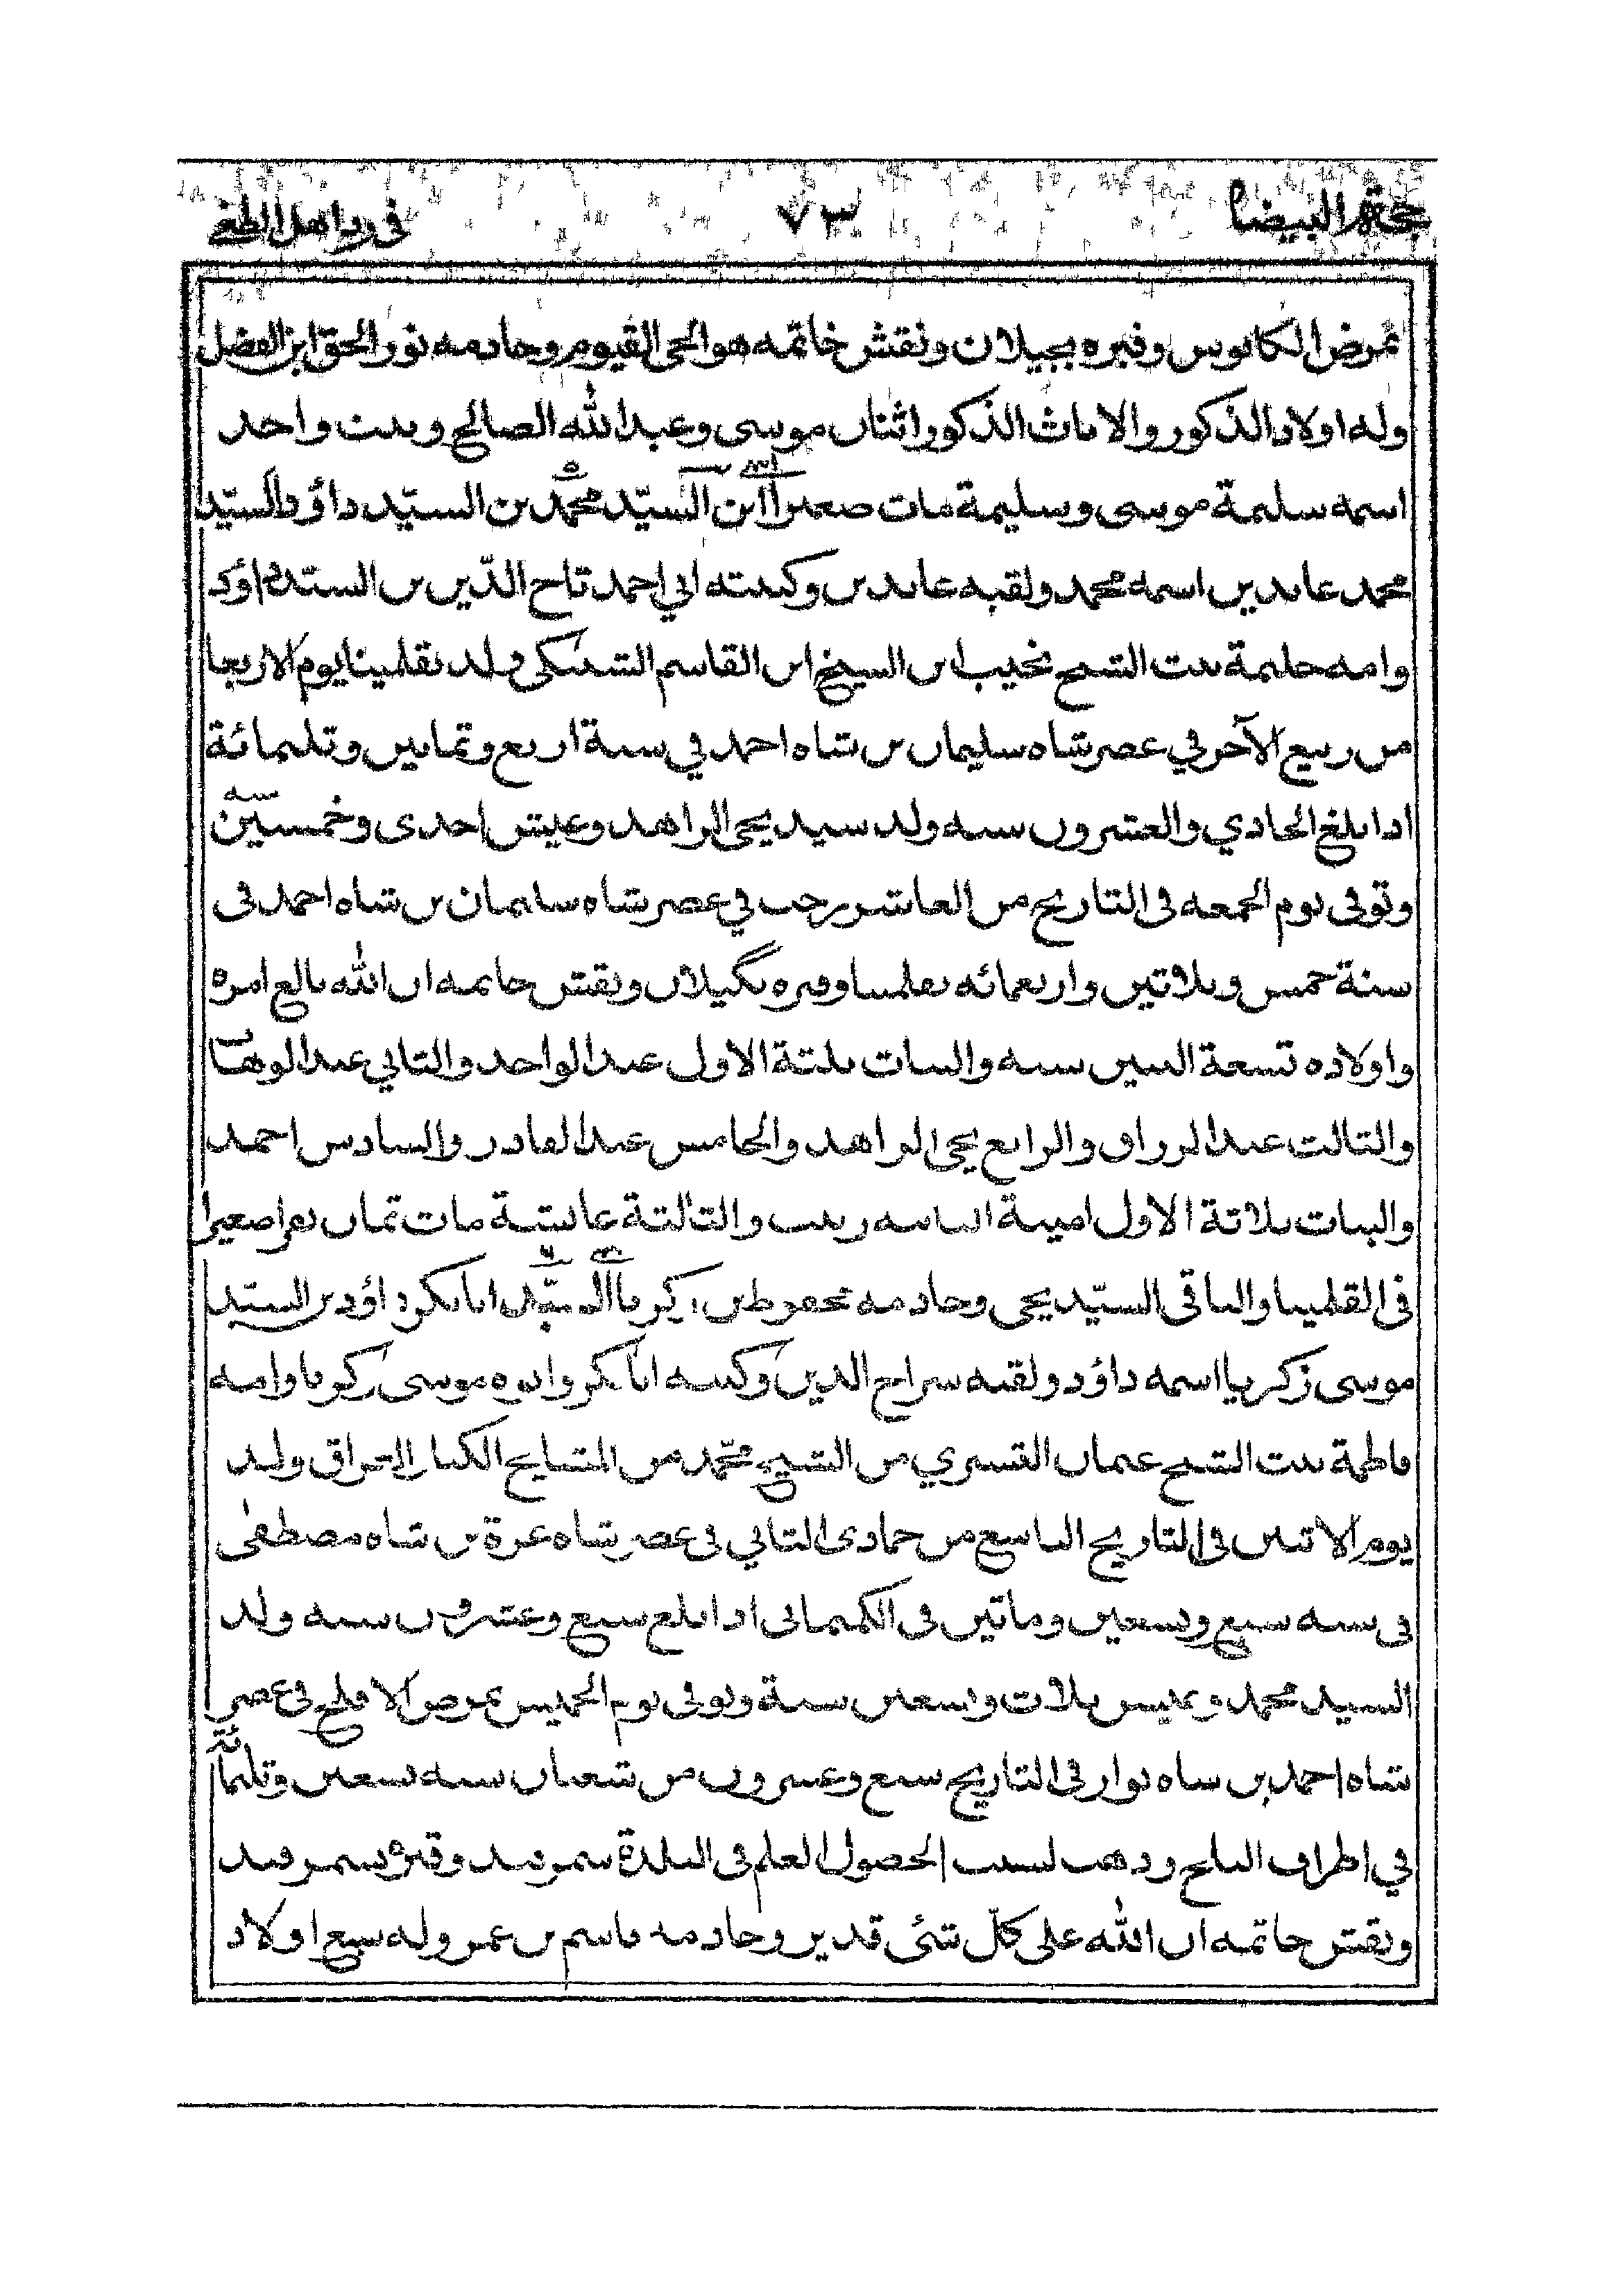 حجة البيضاء ٧٣ في رد اهل الطغى
بمرض الكابوس وقبره بجيلان ونقش خاتمه هو الحي القيوم وخادمه نور الحق ابن الفضل
وله اولاد الذكور والاناث الذكور اثنان موسى وعبد الله الصالح وبنت واحد
اسمه سليمة موسى وسليمة مات صغيرا ابن السيّد محمّد بن السيّد داؤد السيّد
محمد عابدين اسمه محمد ولقبه عابدين وكنيته ابي احمد تاج الدّين بن السيّد داؤد
وامه حليمة بنت الشيخ نجيب ابن الشيخ ابن القاسم ولد بقلمينا يوم الاربعا
من ربيع الآخر في عصر شاه سليمان بن شاه احمد في سنة اربع وثمانين وثلثمائة
اذا بلغ الحادي والعشرون سنه ولد سيد يحيى الزاهد وعيش احدى وخمسين سنه
وتوفى يوم الجمعه فى التاريخ من العاشر رجب في عصر شاه سليمان بن شاه احمد فى
سنة خمس وثلاثين واربعمائه بقلمينا وقبره بگيلان ونقش خاتمه ان الله بالغ امره
واولاده تسعة البنين سته والبنات ثلثة الاول عبد الواحد والثاني عبد الوهاب
والثالث عبد الرزاق والرابع يحيى الزاهد والخامس عبد القادر والسادس احمد
والبنات ثلاثة الاول امينة الثانيه زينب والثالثة عائشة مات ثمان نفرا صغيرا
فى القلمينا والباقى السيّد يحيى وخادمه محفوظ بن زكريا السيّد ابابكر داؤد بن السيّد
موسى زكريا اسمه داؤد ولقبه سراج الدين وكنيته ابابكر وابوه موسى زكريا وامه
فاطمة بنت الشيخ عثمان القسري من الشيخ محمّد من المشايخ الكبار ولد
يوم الاثنين فى التاريخ التاسع من جمادى الثاني فى عصر شاه عزة بن شاه مصطفى
فى سنه سبع وتسعين وماتين فى اذا بلغ سبع وعشرون سنه ولد
السيد محمد وعيش ثلاث وتسعين سنة وتوفى يوم الخميس بمرض الافلج فى عصر
شاه احمد بن شاه نوار فى التاريخ سبع وعشرون من شعبان سنه تسعين وثلثمائة
في اطراف البلخ وذهب لسبب الحصول العلم فى البلدة سمرقند وقبره سمرقند
ونقش خاتمه ان الله على كلّ شئ قدير وخادمه باسم بن عمر وله سبع اولاد